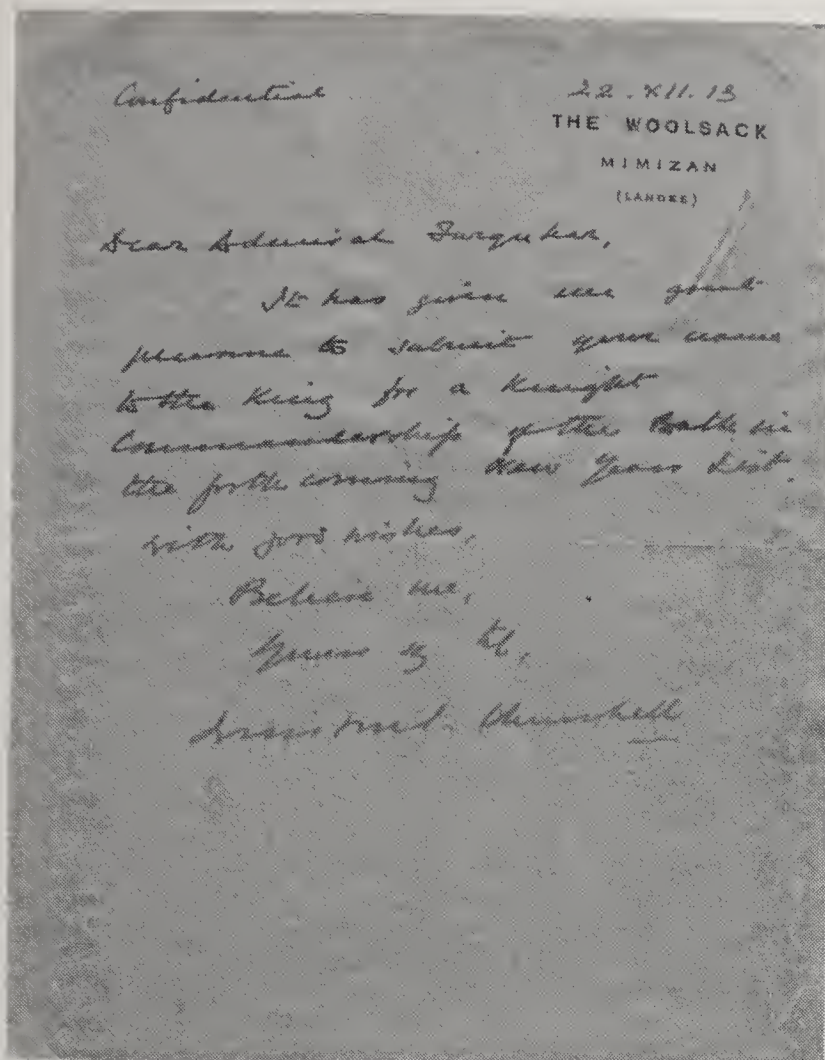 Confidential
22.XII.13
THE WOOLSACK
MIMIZAN
(LANDES)
Dear Admiral Farquhar,
It has given me great
pleasure to submit your name
to the King for a Knight
Commandership of the Bath in
the forthcoming New Years List.
With good wishes,
Believe me,
Yours
Winston S. Churchill